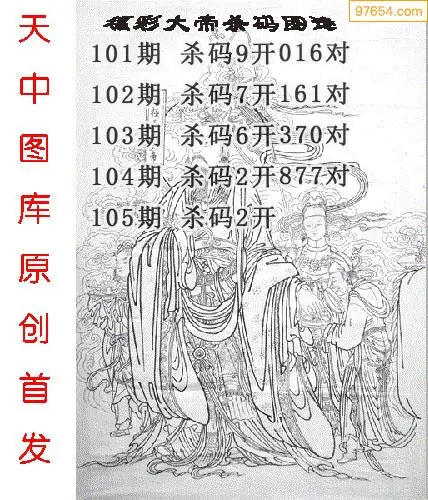 97654.com
福彩大帝杀码图
101期 杀码9开016对
102期 杀码7开161对
103期 杀码6开370对
104期 杀码2开877对
105期 杀码2开
天中图库原创首发